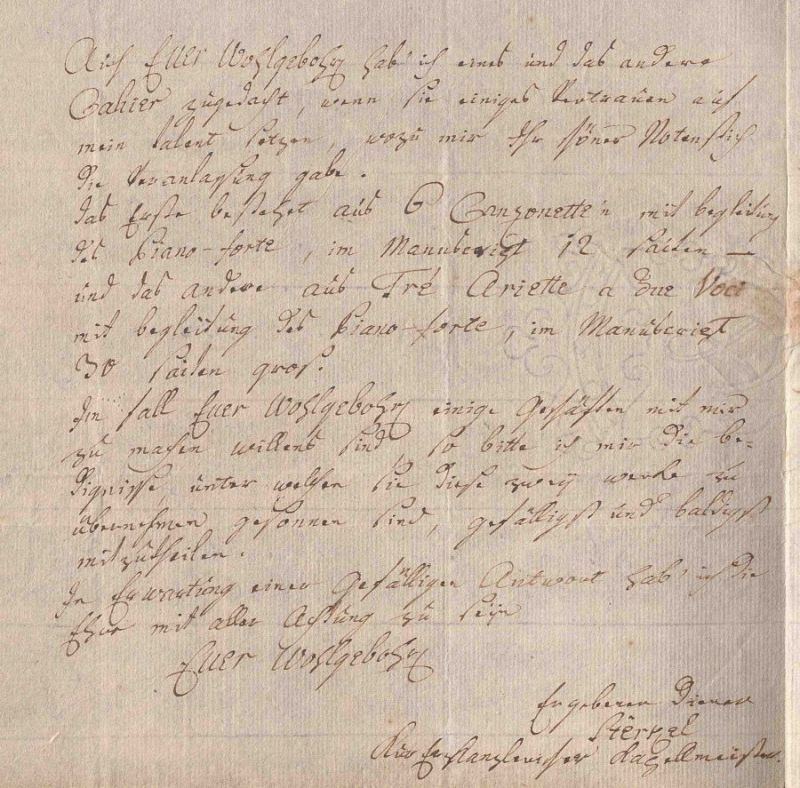 Auch Euer Wohlgebohrn hab' ich eines und das andere
Cahier zugedacht, wenn sie einiges Vertrauen auf
mein talent setzen, wozu mir Ihr schöner Notenstich
die Veranlassung gabe.
das Erste bestehet aus 6 Canzonette'n mit begleitung
des Piano-forte, im Manuscript 12 saiten —
und das andere aus Tré Ariette a due Voci
mit begleitung des Piano-forte, im Manuscript
30 saiten gros.
Im fall Euer Wohlgebohrn einige Geschäften mit mir
zu machen willens sind, so bitte ich mir die be-
dignisse, unter welchen sie diese zwey werke zu
übernehmen gesonnen sind, gefälligst und baldigst
mitzutheilen.
In Erwartung einer Gefälligen Antwort hab' ich die
Ehre mit aller Achtung zu seyn
Euer Wohlgebohrn
Ergebener Diener
Sterkel
Kur Erzkanzlerischer Kapellmeister.